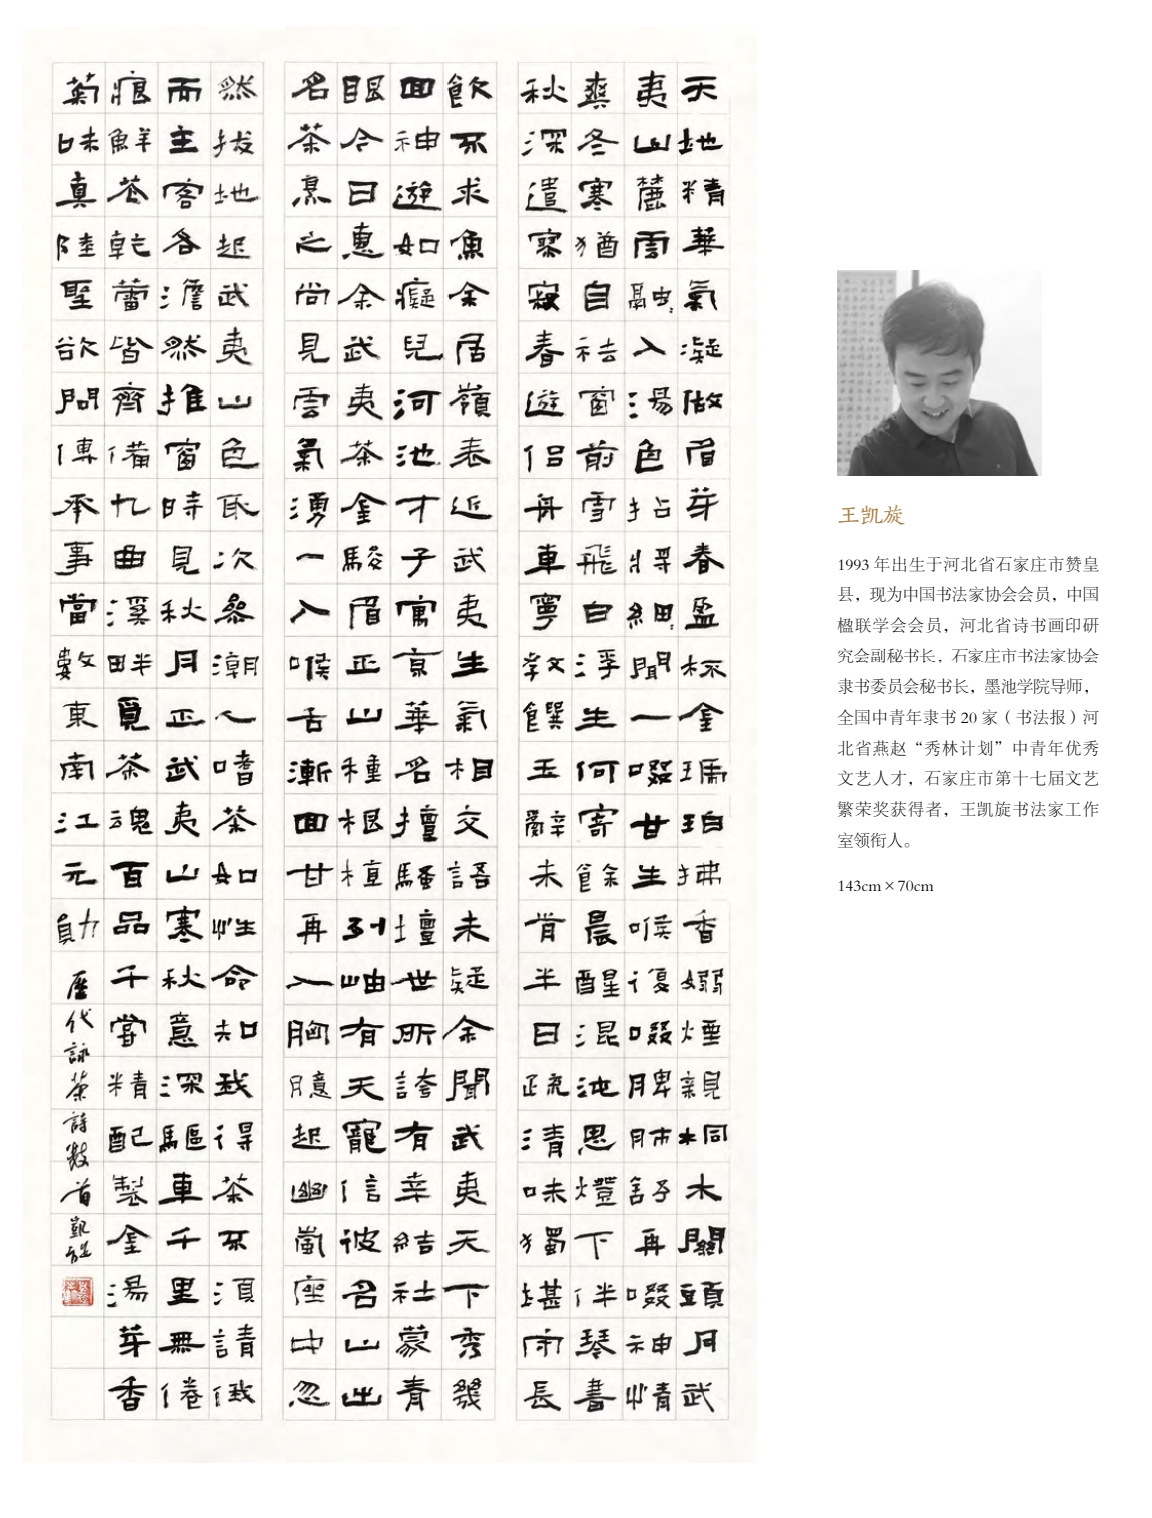 天地精華氣凝做眉芽春盈杯金珀拂香嫋煙親桐木關頭月武
夷山麓雲融入湯色拈將細聞一啜甘生喉復啜脾肺舒再啜神情
爽冬寒猶自祛窗前雪飛白浮生何寄餘晨醒混沌思燈下伴琴書
秋深遣寂春遊侶舟車寧教饌玉辭未肯半日疏清味獨堪雨長
飲不求魚余居嶺表近武夷生氣相交語未疑余聞武夷天下秀幾
回神遊如癡兒河池才子寓京華名擅騷壇世所誇有幸結社蒙青
眼今日惠余武夷茶金駿眉正山種根植引岫有天寵信彼名山出
名茶烹之尚見雲氣湧一入喉舌漸回甘再入胸臆起幽嵐座中忽
然拔地起武夷山色次潮人嗜茶如性命知我得茶不須請
而主客各澹然推窗時見秋月正武夷山寒秋意深驅車千里無倦
痕鮮花乾蕾皆齊備九曲溪畔覓茶魂百品千嘗精配製金湯芽香
菊味真陸聖欲問傳承事當數東南江元勛 歷代詠茶詩數首 凱旋
王凯旋
1993 年出生于河北省石家庄市赞皇
县，现为中国书法家协会会员，中国
楹联学会会员，河北省诗书画印研
究会副秘书长，石家庄市书法家协会
隶书委员会秘书长，墨池学院导师，
全国中青年隶书 20 家（书法报）河
北省燕赵“秀林计划”中青年优秀
文艺人才，石家庄市第十七届文艺
繁荣奖获得者，王凯旋书法家工作
室领衔人。
143cm×70cm